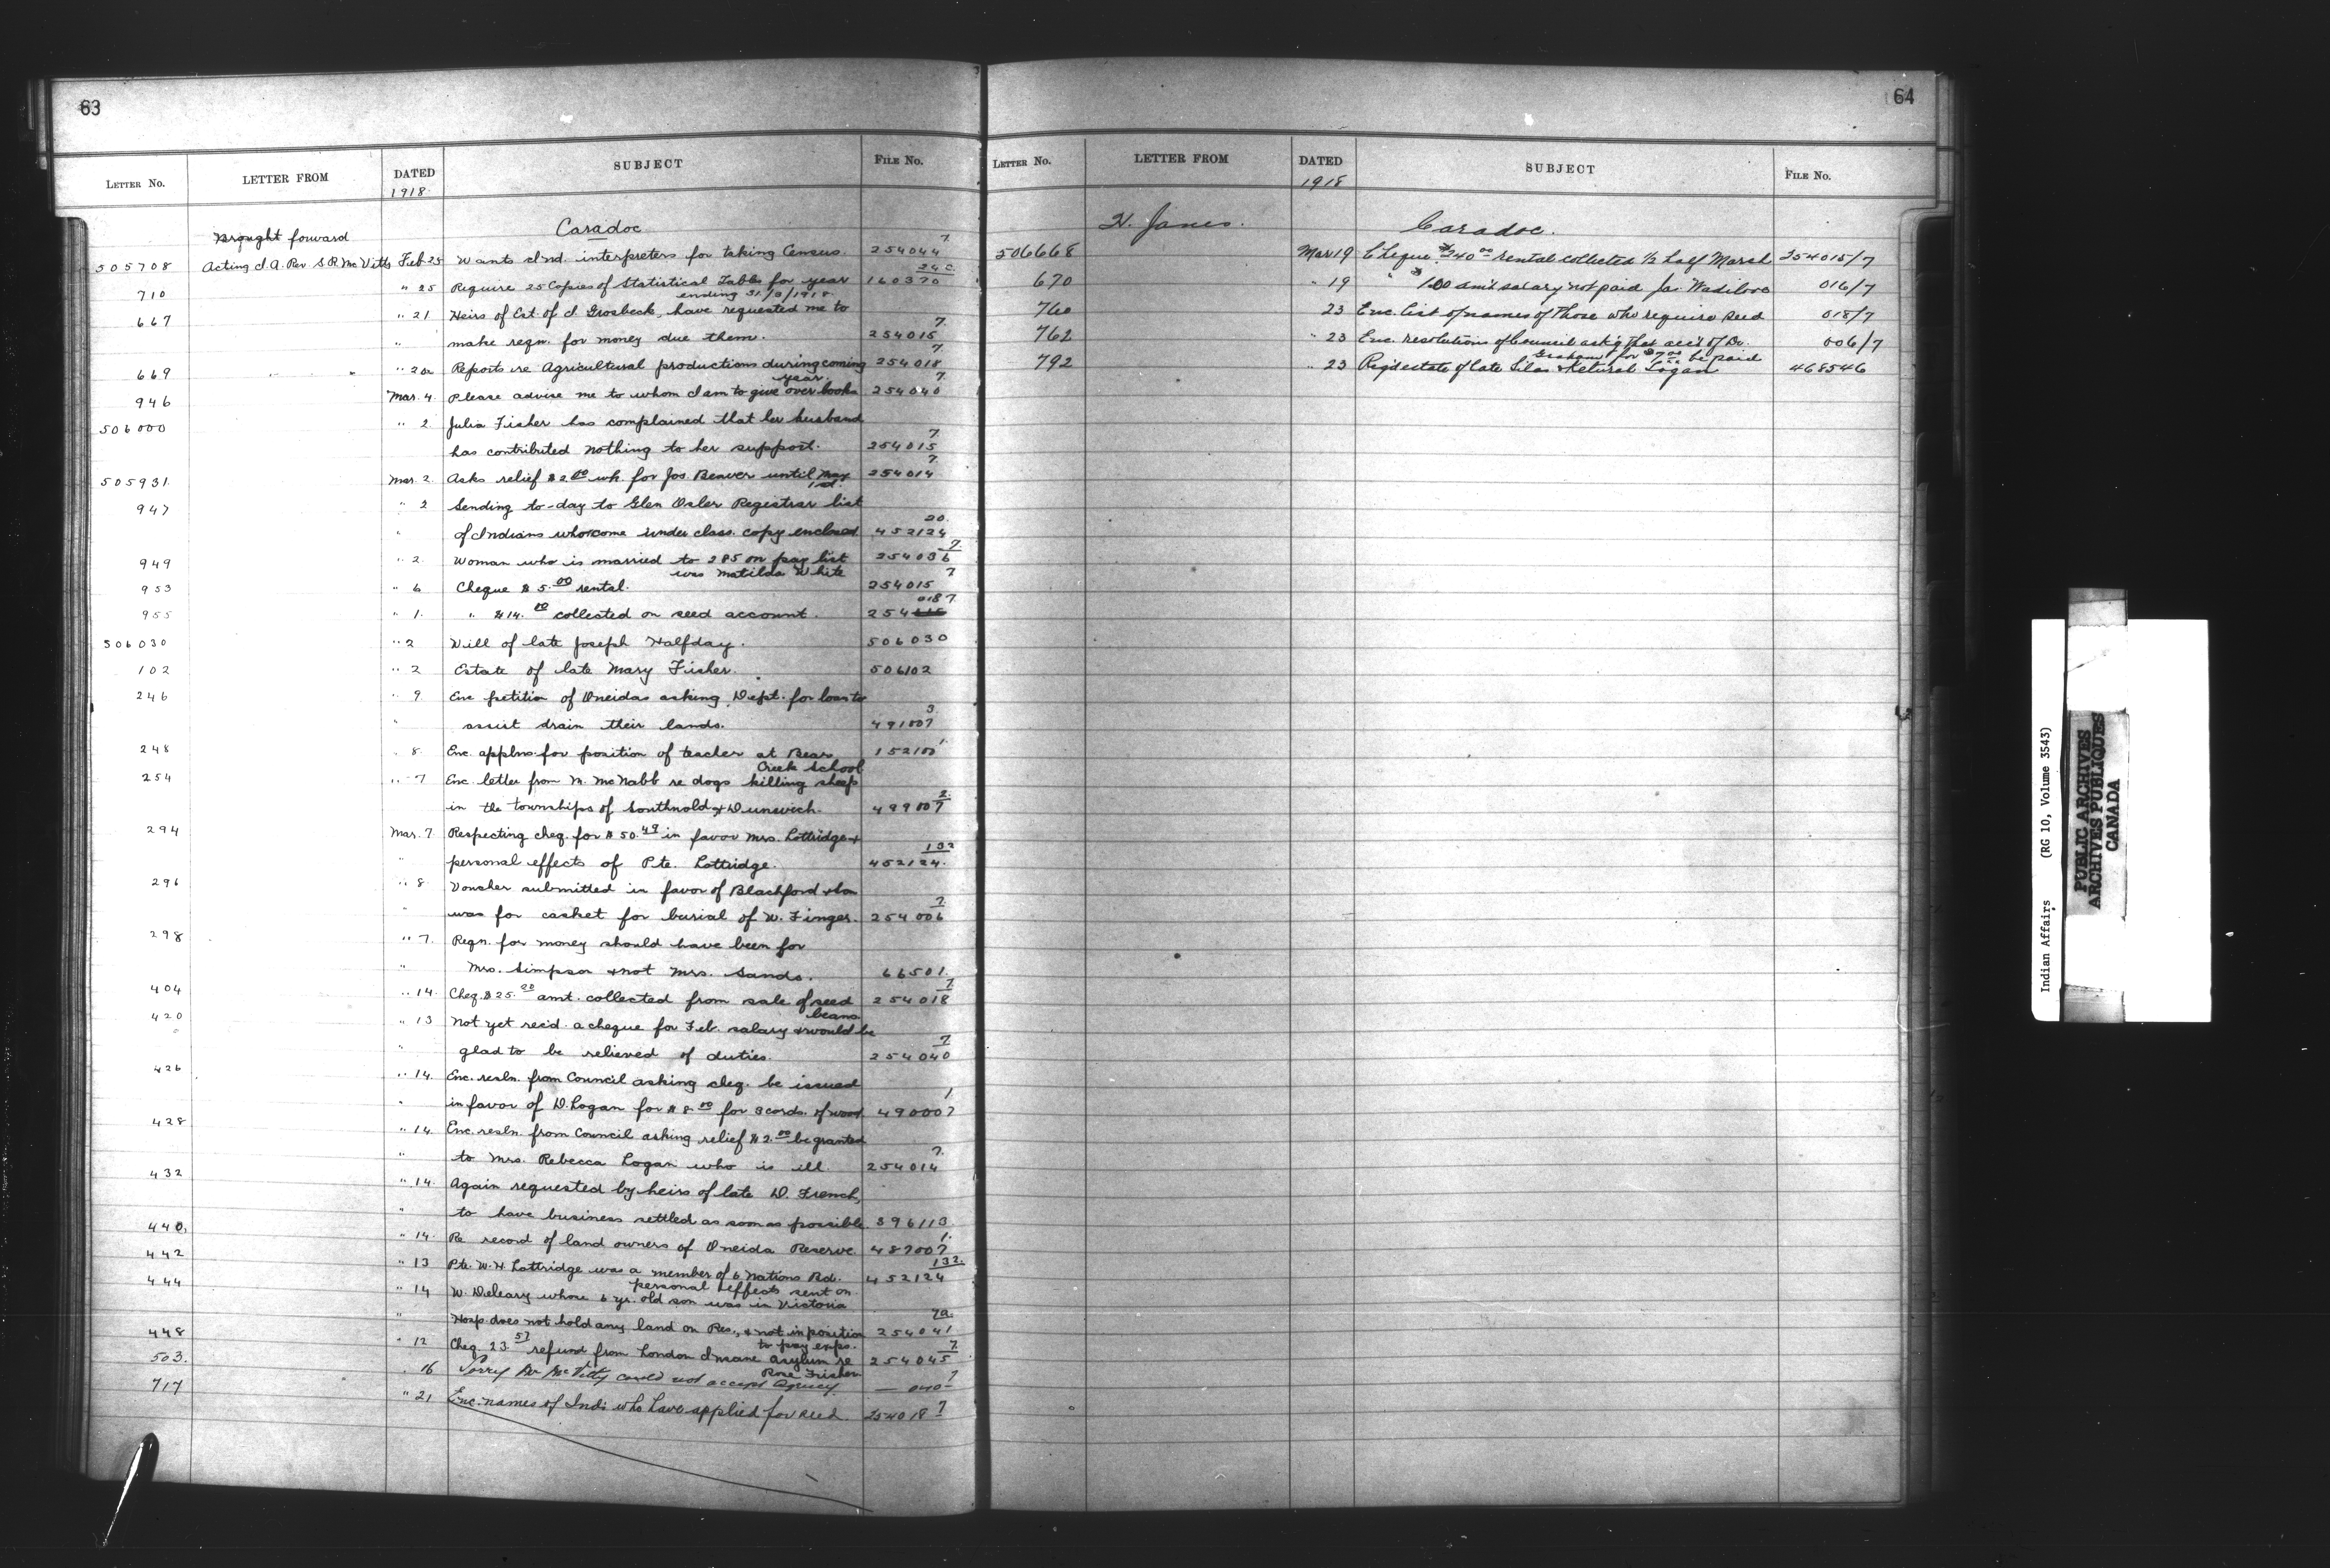 63
LETTER NO. LETTER FROM DATED SUBJECT FILE NO.
1918
Brought forward Caradoc
505708 Acting I.A. Rev S.R. McVitty Feb 25 Wants Ind. interpreters for taking Census. 254044 7
710 " 25 Require 25 Copies of Statistical Tables for year 160370
ending 31/3/1918
667 " 21 Heirs of Est. of I Grosbeck, have requested me to
" make reqn. for money due them. 254015 7
669 " " Reports re Agricultural productions during coming 254018 7
year
946 Mar. 4 Please advise me to whom I am to give over books 254040 7
506000 " 2 Julia Fisher has complained that her husband
has contributed nothing to her support. 254015 7
505931 Mar. 2. Asks relief $2.00 wk. for Jos. Beaver until May 254014 7
1st.
947 " 2 Sending to-day to Glen Osler Registrar list
" of Indians who come under class. copy enclosed 452124 20
949 " 2. Woman who is married to 285 on pay list 254036 7
was Matilda White
953 " 6 Cheque $5.00 rental. 254015 7
955 " 1. " $14.00 collected on seed account. 254 018 7
506030 " 2 Will of late Joseph Halfday. 506030
102 " 2 Estate of late Mary Fisher. 506102
246 " 9. Enc petition of Oneidas asking Dept. for loan to
" assist drain their lands. 491007 3
248 " 8. Enc. applns. for position of teacher at Bear 152100 1
Creek School
254 " 7 Enc. letter from N. McNabb re dogs killing sheep
in the townships of Southwold & Dunwich. 499007 2
294 Mar. 7. Respecting cheq. for $50.49 in favor Mrs. Lottridge &
" personal effects of Pte. Lottridge. 452124 132
296 " 8 Voucher submitted in favor of Blachford & Son
" was for casket for burial of W. Finger. 254006 7
298 " 7. Reqn. for money should have been for
" Mrs. Simpson & not Mrs. Sands. 66501
404 " 14. Cheq. $25.20 amt. collected from sale of seed 254018 7
beans
420 " 13 Not yet rec'd. a cheque for Feb. salary & would be
" glad to be relieved of duties. 254040 7
426 " 14. Enc. resln. from Council asking cheq. be issued
" in favor of D. Logan for $8.00 for 3 cords. of wood 490007 1
428 " 14 Enc. resln. from Council asking relief $2.00 be granted
" to Mrs. Rebecca Logan who is ill. 254014 7
432 " 14. Again requested by heirs of late D. French,
" to have business settled as soon as possible. 396113
440 " 14. Re record of land owners of Oneida Reserve. 487007 1
442 " 13 Pte. W.H Lottridge was a member of 6 Nations Bd. 452124 132
personal effects sent on
444 " 14 W. Deleary whose 6 yr. old son was in Victoria
" Hosp. does not hold any land on Res., & not in position 254041 7a
to pay exps.
448 " 12 Cheq. 23.57 refund from London Insane Asylum re 254045 7
Rose Fisher
503. 16 Sorry Dr McVitty could not accept Agency. — 040 — 7
717 " 21 Enc. names of Inds who have applied for seed. 254018 7
64
LETTER NO. LETTER FROM DATED SUBJECT FILE NO.
1918
H. Janes. Caradoc.
506668 Mar 19 Cheque $240.00 rental collected 1/2 half Marsh 254015/7
670 " 19 " $1.00 salary not paid Jas. 016/7
760 23 Enc. list of names of those who require seed 018/7
762 " 23 Enc. resolutions of Council ask'g that acc't of Dr. 006/7
Graham for $7.00 be paid
792 " 23 estate of late Silas Logan 468546
Indian Affairs (RG 10, Volume 3543)
PUBLIC ARCHIVES
ARCHIVES PUBLIQUES
CANADA